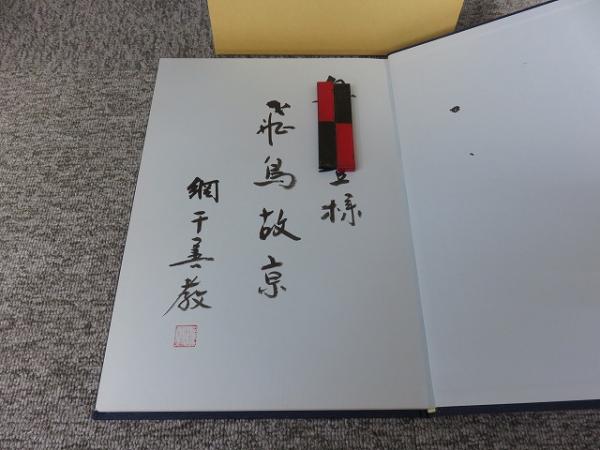 様
飛鳥故京
網干善教